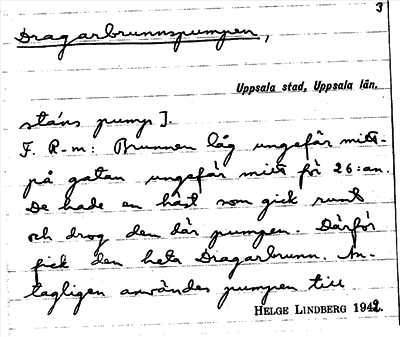 3
Dragarbrunnspumpen,
Uppsala stad, Uppsala län.
stans pump].
F. R-m: Brunnen låg ungefär mitt-
på gatan ungefär mitt för 26:an.
De hade en häst som gick runt
och drog den där pumpen. Därför
fick den heta Dragarbrunn. An-
tagligen användes pumpen till
HELGE LINDBERG 1942.